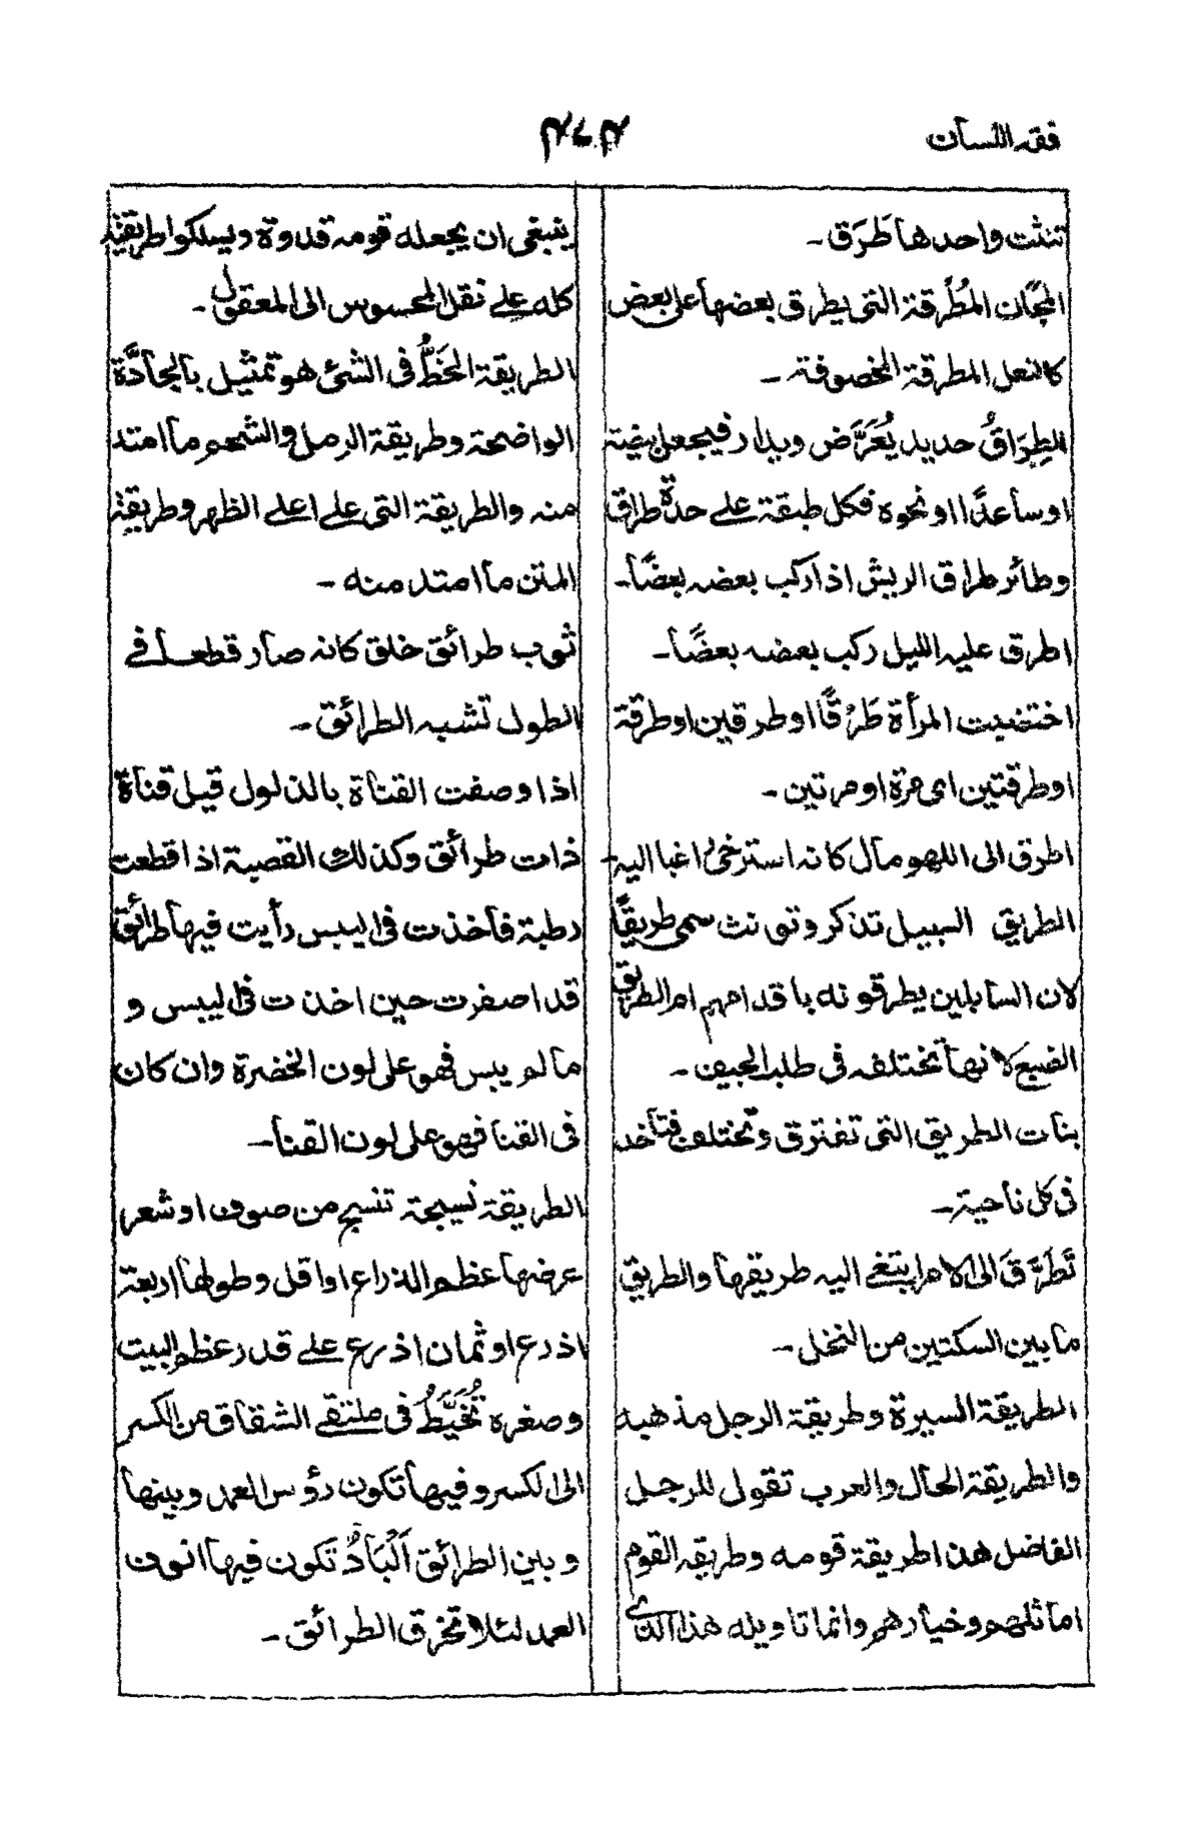 فقه اللسان
تنثت واحدها طَرَق ـ
المجان المُطَّرقة التى يطرق بعضها على بعض
كالنعل المطرقة المخصوفة ـ
الطِرَاقُ حديد يُعَرَّض ويدار فيجعل بيضة
او ساعدًا او نحوه فكل طبقة على حدة طراق
وطائر طراق الريش اذا ركب بعضه بعضًا ـ
اطرق عليه الليل ركب بعضه بعضًا ـ
اختضبت المرأة طَرْقًا او طرقين او طرقة
او طرقتين اى مرة او مرتين ـ
اطرق الى اللهو مال كانه استرخى راغبا اليه ـ
الطريق السبيل تذكر وتونث سمى طريقًا
لان السابلين يطرقونه باقدامهم ام الطريق
الضبع لانها تختلف فى طلب الجيف ـ
بنات الطريق التى تفترق وتختلف فتاخذ
فى كل ناحية ـ
تَطَرَّقَ الى الامر ابتغى اليه طريقها والطريق
ما بين السكتين من النخل ـ
الطريقة السيرة وطريقة الرجل مذهبه
والطريقة الحال والعرب تقول للرجل
الفاضل هذا طريقة قومه وطريقه القوم
اماثلهم وخيارهم وانما تاويله هذا الذى
ينبغى ان يجعله قومه قدوة ويسلكوا طريقته
كله على نقل المحسوس الى المعقول ـ
الطريقة الخَطُّ فى الشئ هو تمثيل بالجادَّة
الواضحة وطريقة الرمل والشحم ما امتد
منه والطريقة التى على اعلى الظهر وطريقة
المتن ما امتد منه ـ
ثوب طرائق خلق كانه صار قطعا فى
الطول تشبه الطرائق ـ
اذا وصفت القناة بالذلول قيل قناة
ذات طرائق وكذلك القصبة اذا قطعت
رطبة فاخذت فى اليبس رأيت فيها طرائق
قد اصفرت حين اخذت فى اليبس و
ما لم يبس فهو على لون الخضرة وان كان
فى القنا فهو على لون القنا ـ
الطريقة نسيجة تنسج من صوف او شعر
عرضها عظم الذراع او اقل وطولها اربعة
اذرع او ثمان اذرع على قدر عظم البيت
وصغره تُخَيَّطُ فى ملتقى الشقاق من الكسر
الى الكسر وفيها تكون رؤس العمد وبينها
وبين الطرائق اَلْبَادٌ تكون فيها انوف
العمد لئلا تخرق الطرائق ـ